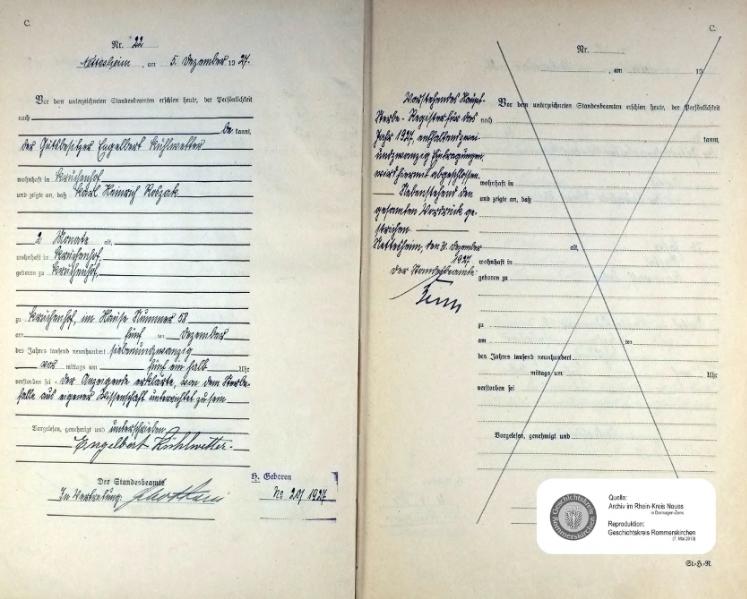 C.
Nr. 22
Nettesheim, am 5. Dezember 1927.
Vor dem unterzeichneten Standesbeamten erschien heute, der Persönlichkeit
nach
be kannt,
der Gutsbesitzer Engelbert Kühlwetter
wohnhaft in
und zeigte an, daß Karl Heinrich
2 Monate alt,
wohnhaft in
geboren zu
zu im Hause Nummer 58
am fünf ten Dezember
des Jahres tausend neunhundert siebenundzwanzig
vor mittags um fünf ein halb Uhr
verstorben sei. Der Anzeigende erklärte, von dem Sterbe-
falle aus eigener Wissenschaft unterrichtet zu sein
Vorgelesen, genehmigt und unterschrieben
Engelbert Kühlwetter.
Der Standesbeamte
In Vertretung:
H. Geboren
No 20/1927
C.
Nr.
, am 19
Vorstehendes Haupt-
Sterbe-Register für das
Jahr 1927, enthaltend zwei
undzwanzig Eintragungen
wird hiermit abgeschlossen.
Nebenstehend den
gesamten Vordruck ge-
strichen
Nettesheim, den 31. Dezember
1927.
Der Standesbeamte.
Vor dem unterzeichneten Standesbeamten erschien heute, der Persönlichkeit
nach
kannt,
wohnhaft in
und zeigte an, daß
alt,
wohnhaft in
geboren zu
zu
am ten
des Jahres tausend neunhundert
mittags um Uhr
verstorben sei
Vorgelesen, genehmigt und
Geschichtskreis
Rommerskirchen
Quelle:
Archiv im Rhein-Kreis Neuss
in Dormagen-Zons
Reproduktion:
Geschichtskreis Rommerskirchen
(7. Mai 2013)
St-H-R